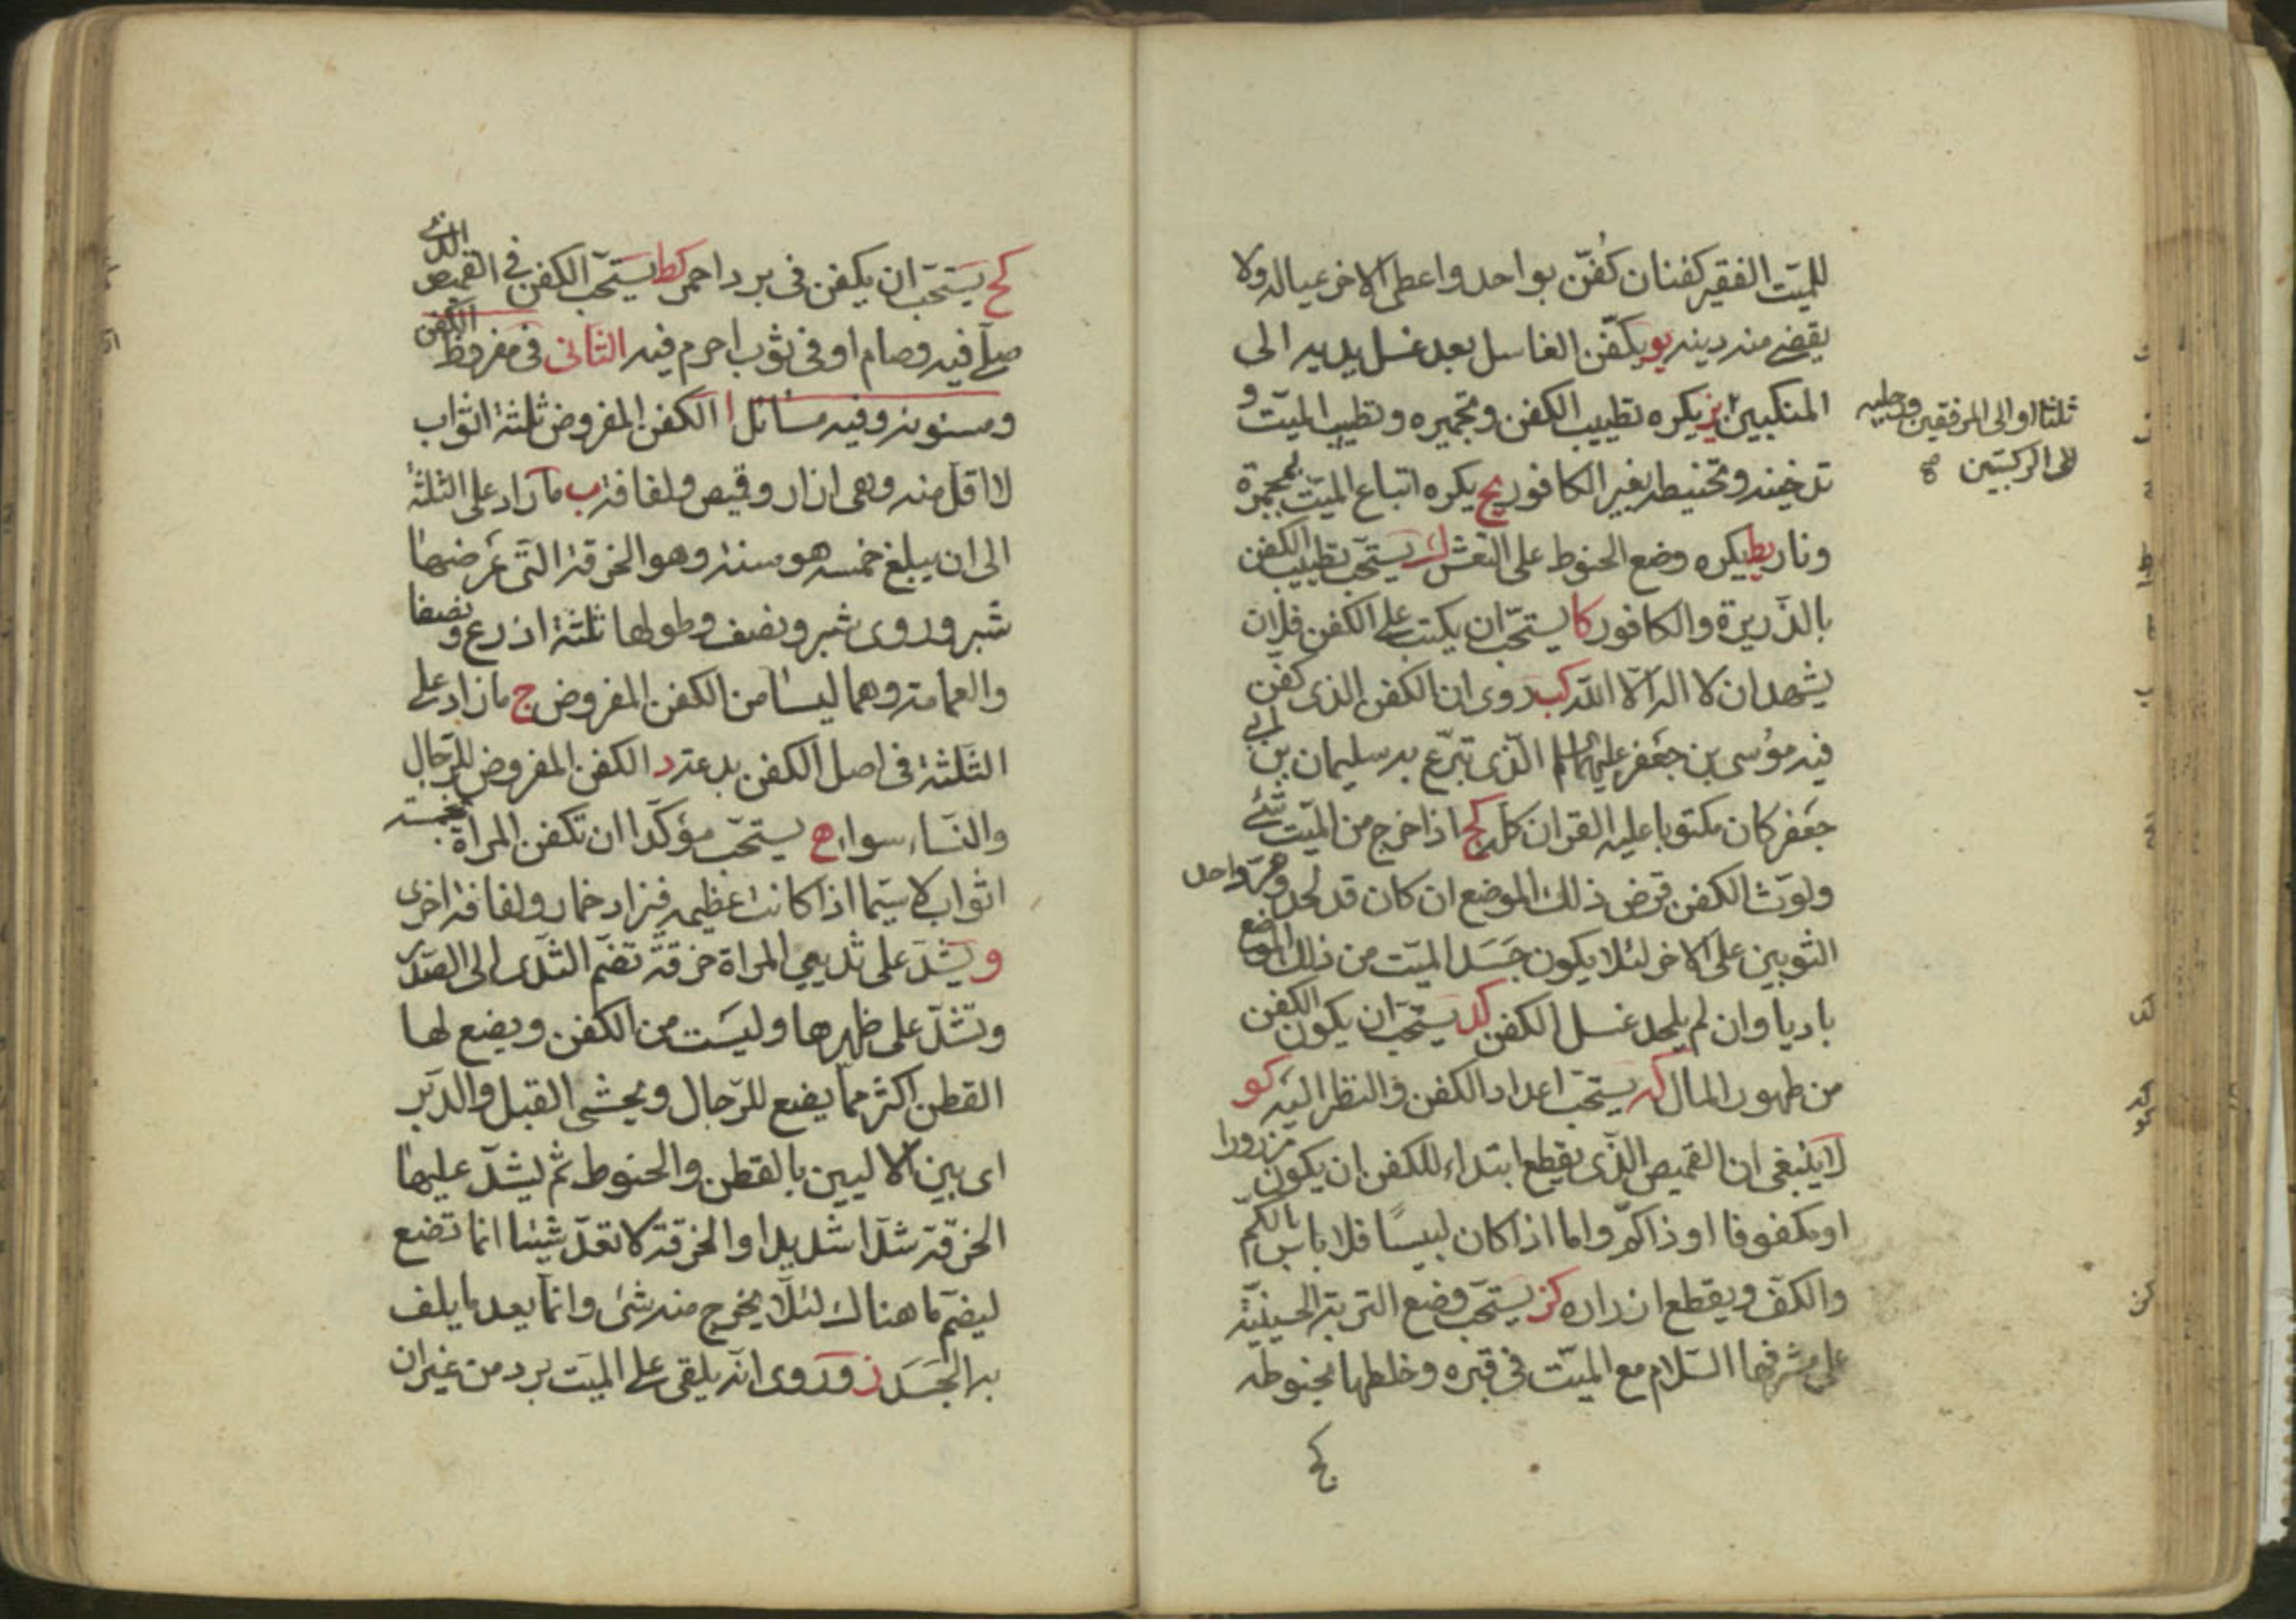 للميّت الفقير كفنان كُفّن بواحد واعطى الاخر عياله ولا
يقضى منه دينه يو يكفّن الغاسل بعد غسل يديه الى
المنكبين يز يكره تطييب الكفن وتجميره وتطييب الميّت و
تدخينه وتحنيطه بغير الكافور يح يكره اتباع الميّت بمجمرة
ونار يط يكره وضع الحنوط على النعش ك يستحبّ تطييب الكفن
بالذّريرة والكافور كا يستحبّ ان يكتب على الكفن فلان
يشهد ان لا اله الّا الله كب روى ان الكفن الذى كفّن
فيه موُسى بن جعفر عليهما السلم الّذى تبرّع به سليمان بن ابى
جعفر كان مكتوبا عليه القران كله كج اذا خرج من الميّت شئ
ولوّث الكفن قرض ذلك الموضع ان كان قد لحد ومدّ واحد
الثوبين على الاخر لئلا يكون جَسَد الميّت من ذلك الموضع
باديا وان لم يلحد غسل الكفن كد يستحبّ ان يكون الكفن
من طهور المال كه يستحبّ اعداد الكفن والنظر اليه كو
لا ينبغى ان القميص الّذى يقطع ابتداء للكفن ان يكون مزرورا
او مكفوفا او ذا كمّ واما اذا كان لبيسًا فلا باس بالكمّ
والكفّ ويقطع ازراره كز يستحبّ وضع التربة الحسينيّة
على مشرفها السّلام مع الميّت فى قبره وخلطها بحنوطه
كح
ثلثا او الى المرفقين ورجليه
الى الركبتين صح
كح يستحبّ ان يكفن فى برد احمر كط يستحبّ الكفن فى القميص الذى
صلّى فيه وصام او فى ثوب احرم فيه الثانى فى مفروض الكفن
ومسنونه وفيه مسائل ا الكفن المفروض ثلثة اثواب
لا اقل منه وهى ازار وقميص ولفافة ب ما زاد على الثلثة
الى ان يبلغ خمسه هو سنة وهو الخرقة التى عَرضها
شبر وروى شبر ونصف وطولها ثلثة اذرع و نصفا
والعمامة وهما ليسا من الكفن المفروض ج ما زاد على
الثلثة فى اصل الكفن بدعة د الكفن المفروض للرّجال
والنّساء سواء ه يستحبّ مؤكّدا ان تكفن المراة بخمسة
اثواب لا سيّما اذا كانت عظيمه فيزاد خمار ولفافة اخرى
و يشدّ على ثديي المراة خرقة تضمّ الثدى الى الصّدر
وتشدّ على ظهرها وليست من الكفن ويضع لها
القطن اكثر ممّا يضع للرّجال ويحشى القبل والدّبر
اى بين الاليين بالقطن والحنوط ثم يشدّ عليها
الخرقة شدّا شديدا والخرقة لا تعدّ شيئا انما تضع
ليضمّ ما هناك لئلّا يخرج منه شئ وانّما يعد ما يلف
به الجَسَد ز وروى انه يلقى على الميّت برد من غير ان